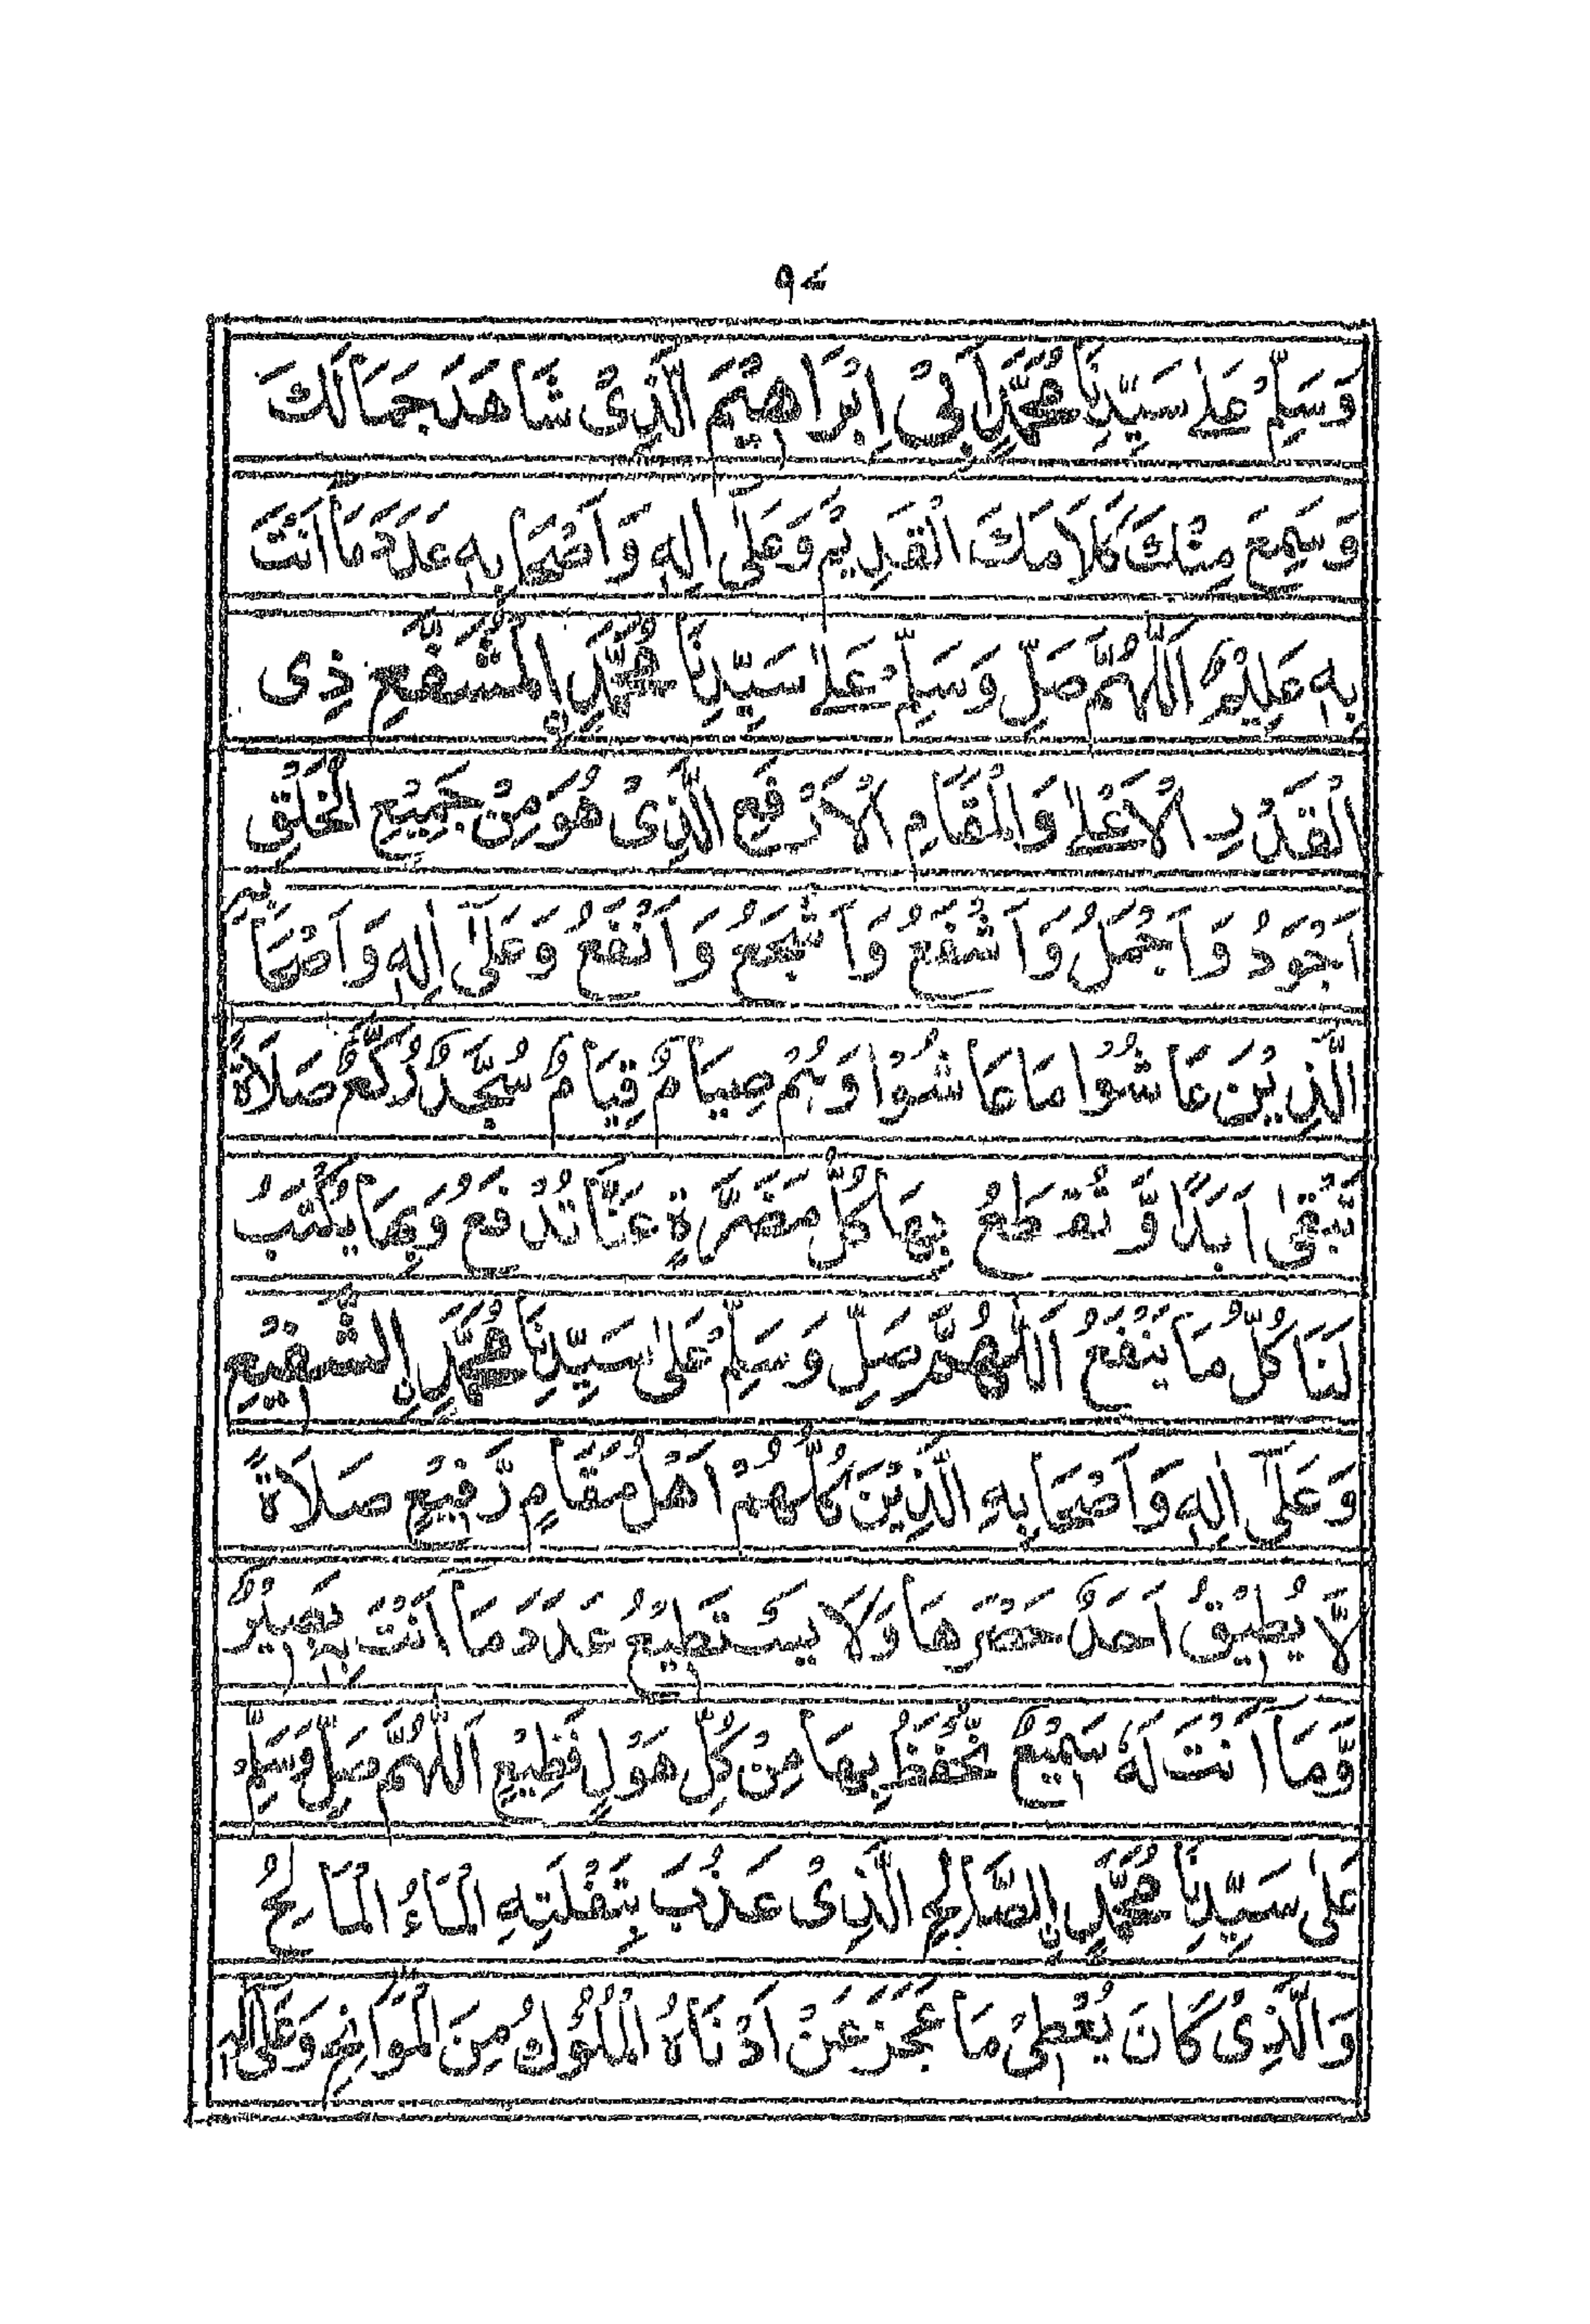 ٩٤
وَسَلِّمْ عَلٰى سَيِّدِنَا مُحَمَّدٍ اَبِىْ اِبْرَاهِيْمَ الَّذِىْ شَاهَدَ جَمَالَكَ
وَسَمِعَ مِنْكَ كَلَامَكَ الْقَدِيْمَ وَعَلٰى اٰلِهٖ وَاَصْحَابِهٖ عَدَدَ مَا اَنْتَ
بِهٖ عَلِيْمٌ اَللّٰهُمَّ صَلِّ وَسَلِّمْ عَلٰى سَيِّدِنَا مُحَمَّدِ نِ الْمُشَفَّعِ ذِى
الْقَدْرِ الْاَعْلٰى وَالْمَقَامِ الْاَرْفَعِ الَّذِىْ هُوَ مِنْ جَمِيْعِ الْخَلْقِ
اَجْوَدُ وَاَجْمَلُ وَاَشْفَعُ وَاَشْجَعُ وَاَنْفَعُ وَعَلٰٓى اٰلِهٖ وَاَصْحَابِهٖ
الَّذِيْنَ عَاشُوْا مَا عَاشُوْا وَهُمْ صِيَامٌ قِيَامٌ سُجَّدٌ رُكَّعٌ صَلَاةً
تَبْقٰى اَبَدًا وَّ تُقْطَعُ بِهَا كُلُّ مَضَرَّةٍ عَنَّا تُدْفَعُ وَبِهَا يُكْتَبُ
لَنَا كُلُّ مَا يَنْفَعُ اَللّٰهُمَّ صَلِّ وَسَلِّمْ عَلٰى سَيِّدِنَا مُحَمَّدِ نِ الشَّفِيْعِ
وَعَلٰٓى اٰلِهٖ وَاَصْحَابِهِ الَّذِيْنَ كُلُّهُمْ اَهْلُ مَقَامٍ رَّفِيْعٍ صَلَاةً
لَّا يُطِيْقُ اَحَدٌ حَصْرَهَا وَلَا يَسْتَطِيْعُ عَدَدَ مَا اَنْتَ بِهٖ بَصِيْرٌ
وَّمَا اَنْتَ لَهٗ سَمِيْعٌ نُحْفَظُ بِهَا مِنْ كُلِّ هَوْلٍ فَظِيْعٍ اَللّٰهُمَّ صَلِّ وَسَلِّمْ
عَلٰى سَيِّدِنَا مُحَمَّدِ نِ الصَّالِحِ الَّذِىْ عَذُبَ بِتَفْلَتِهِ الْمَاءُ الْمَالِحُ
وَالَّذِىْ كَانَ يُعْطِىْ مَا عَجَزَ عَنْ اَدْنَاهُ الْمُلُوْكُ مِنَ الْمَوَائِحِ وَعَلٰٓى اٰلِهٖ